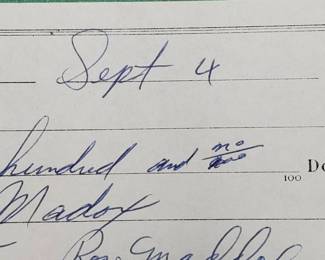 Sept 4
hundred and no/100 Do
Madox
Rose Maddox